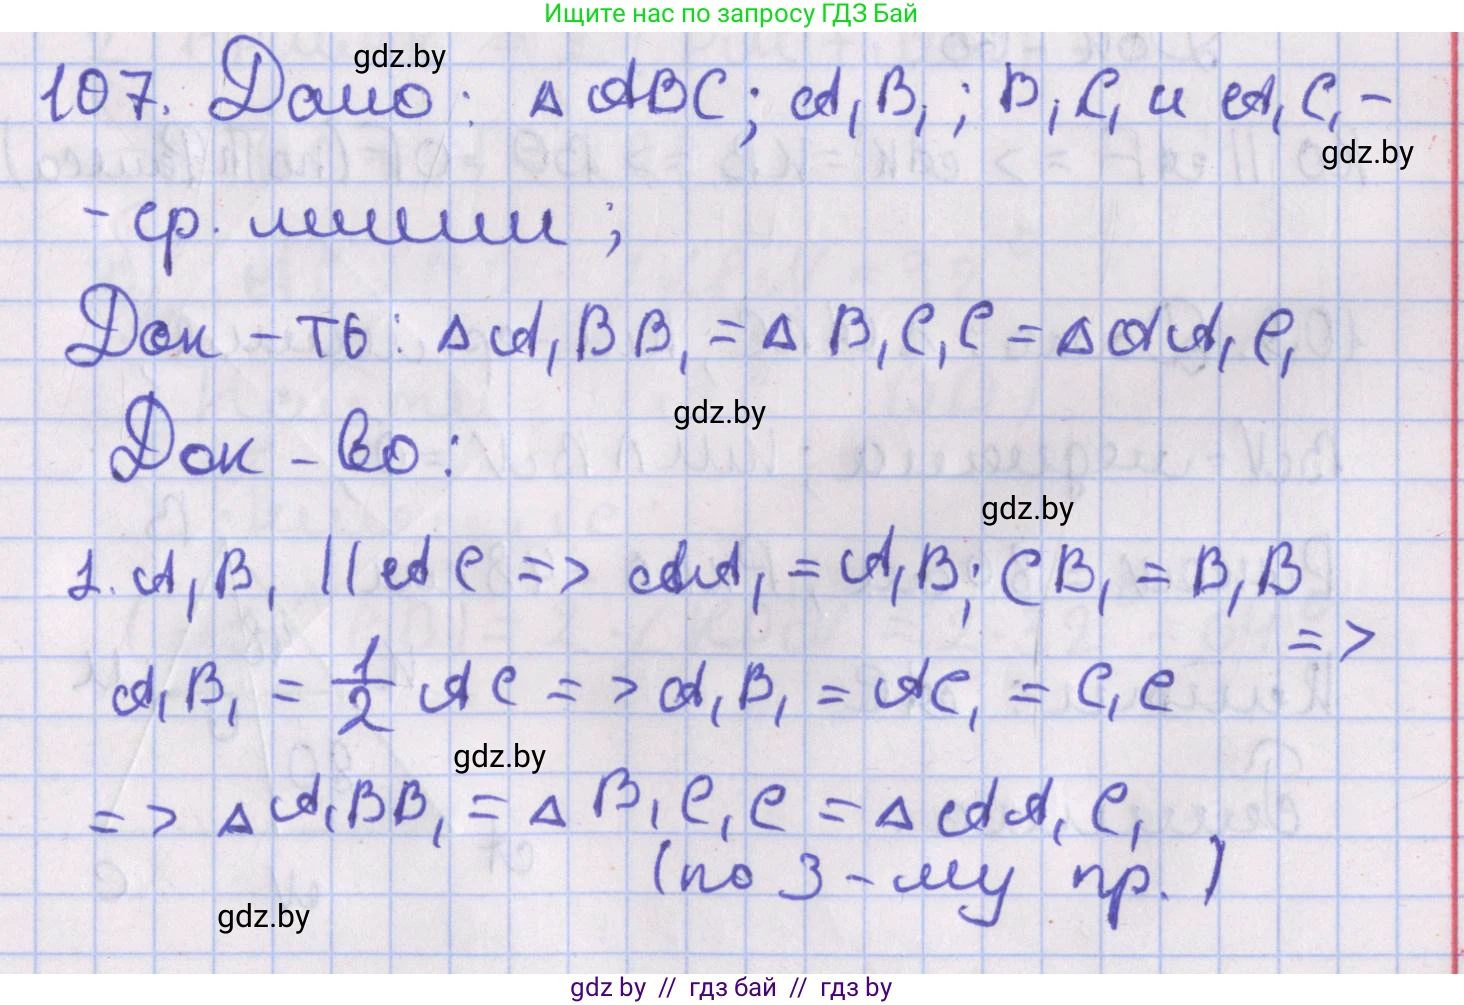 Ищите нас по запросу ГДЗ Бай
gdz.by
107. Дано: △ ABC; A₁B₁; B₁C₁ и A₁C₁ -
gdz.by
- ср. линии;
Док-ть: △ A₁BB₁ = △ B₁C₁C = △ AA₁C₁
gdz.by
Док-во:
gdz.by
1. A₁B₁ || AC => AA₁ = A₁B; CB₁ = B₁B
=>
A₁B₁ = 1/2 AC => A₁B₁ = AC₁ = C₁C
gdz.by
=> △ A₁BB₁ = △ B₁C₁C = △ AA₁C₁
(по 3-му пр.)
gdz.by
gdz by // гдз бай // gdz by